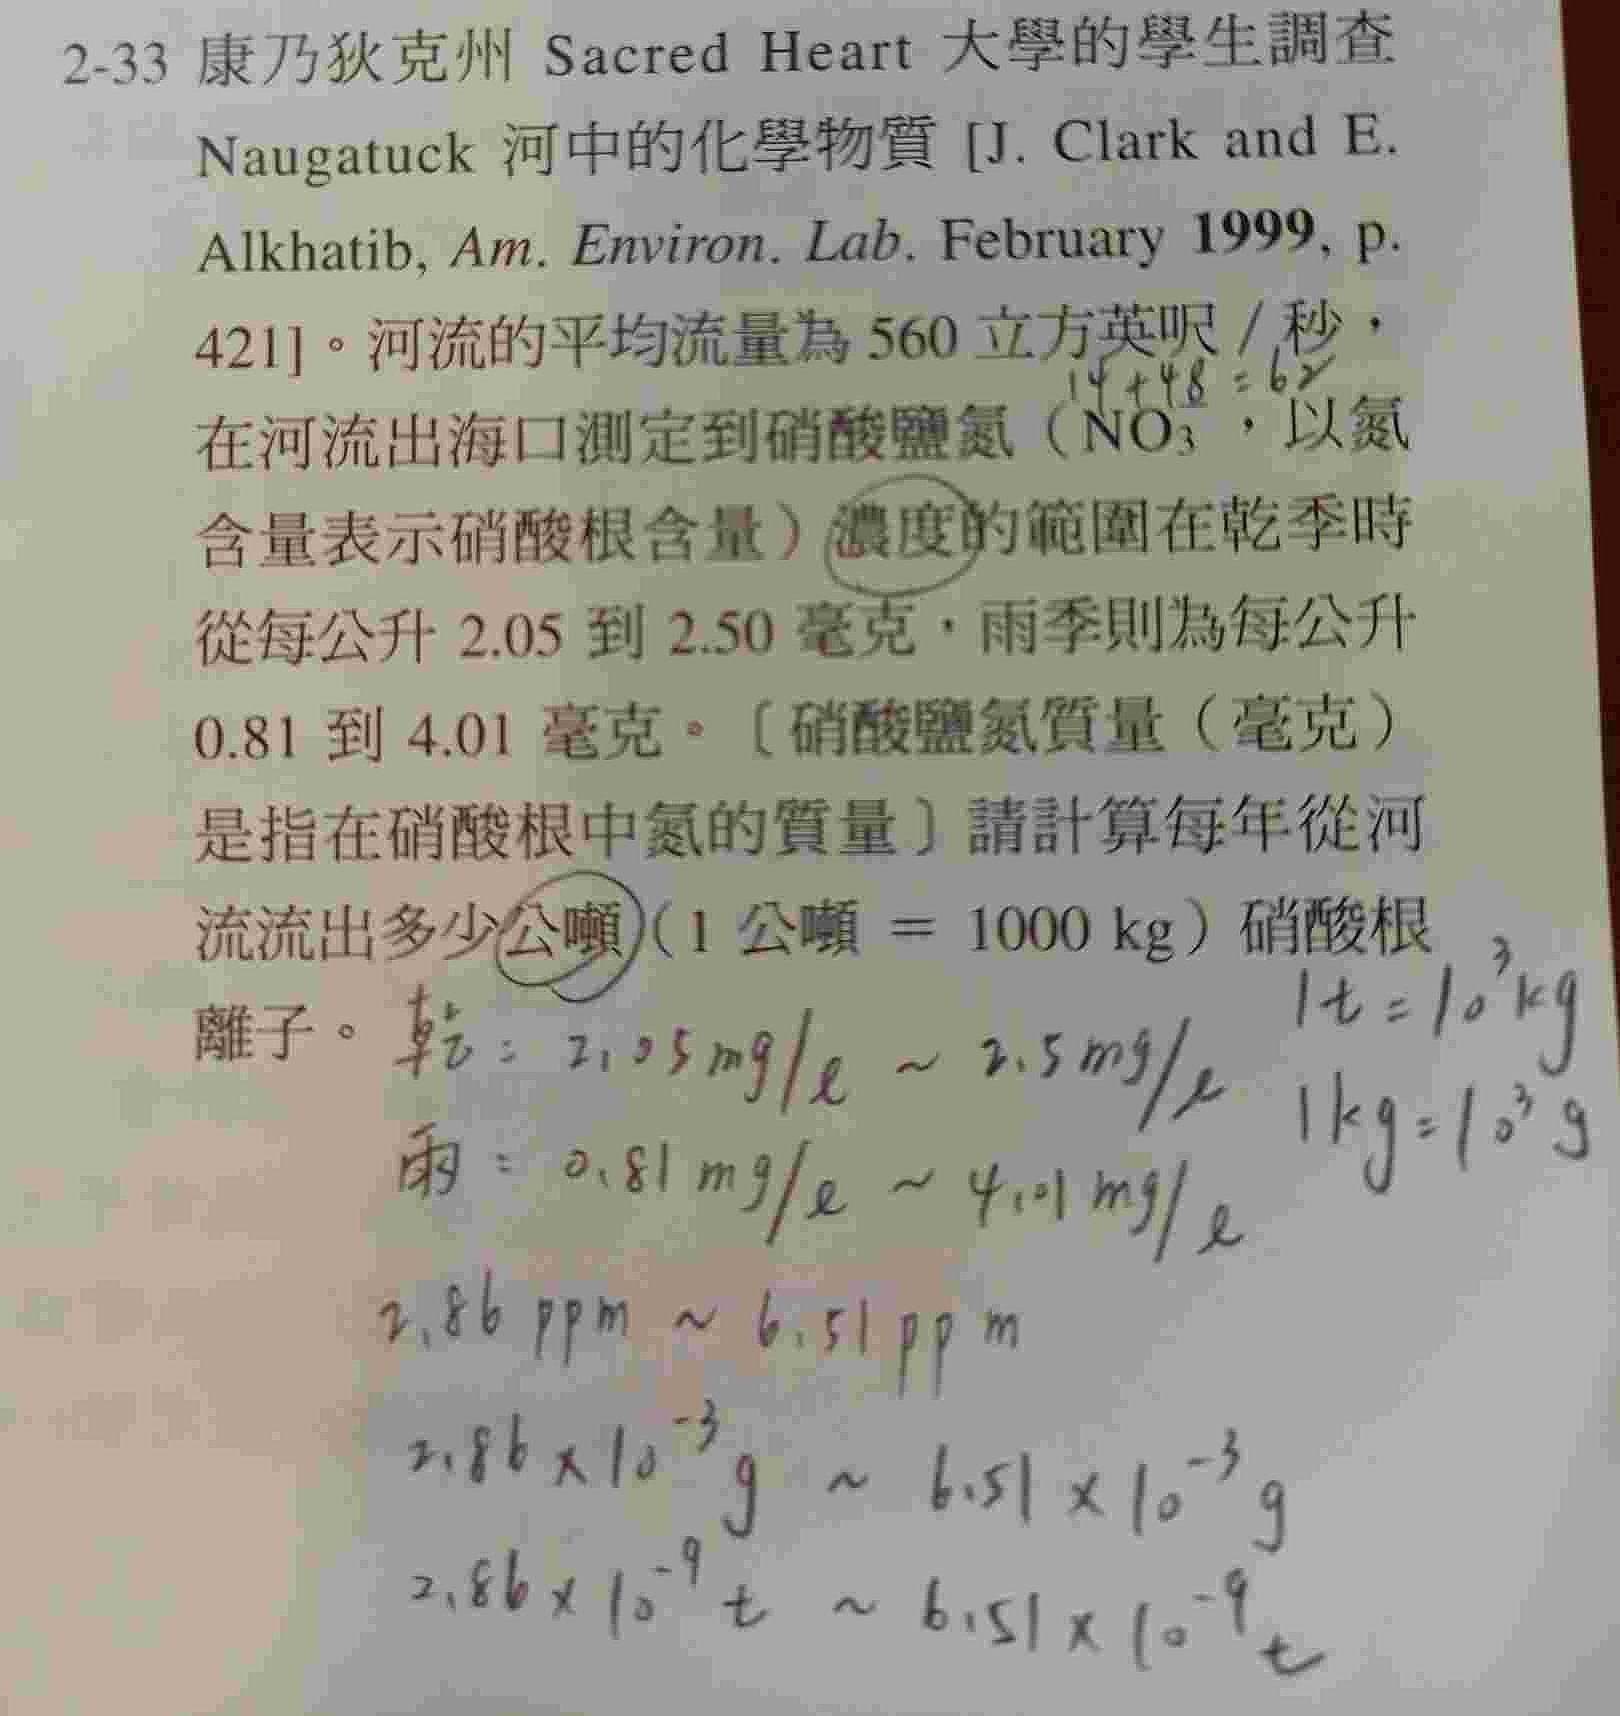 2-33 康乃狄克州 Sacred Heart 大學的學生調查
Naugatuck 河中的化學物質 [J. Clark and E.
Alkhatib, Am. Environ. Lab. February 1999, p.
421]。河流的平均流量為 560 立方英呎 / 秒，
14+48=62
在河流出海口測定到硝酸鹽氮（NO₃⁻，以氮
含量表示硝酸根含量）濃度的範圍在乾季時
從每公升 2.05 到 2.50 毫克，雨季則為每公升
0.81 到 4.01 毫克。〔硝酸鹽氮質量（毫克）
是指在硝酸根中氮的質量〕請計算每年從河
流流出多少公噸（1 公噸 = 1000 kg）硝酸根
離子。
乾: 2.05mg/l ~ 2.5mg/l
1t=10³kg
雨: 0.81mg/l ~ 4.01mg/l
1kg=10³g
2.86ppm ~ 6.51ppm
2.86×10⁻³g ~ 6.51×10⁻³g
2.86×10⁻⁹t ~ 6.51×10⁻⁹t